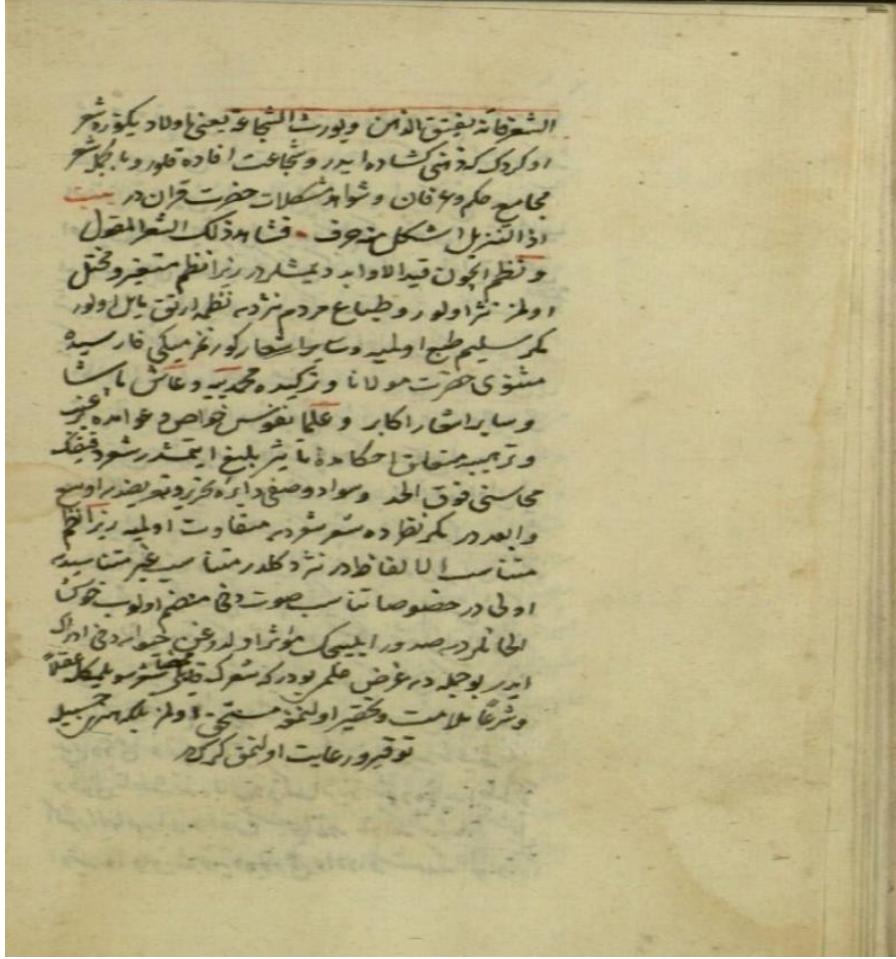 الشعر فانه يفتق الذهن ويورث الشجاعة يعنى اولاديكزه شعر
اوكردك كه ذهنى كشاده ايدر وشجاعت افاده قلور وبالجمله شعر
مجامع حكم وعرفان وشواهد مشكلات حضرت قران در بيت
اذا التنزيل اشكل منه حرف فشاهد ذلك الشعر المقول
ونظم ايچون قيد الاوابد ديمشلردر زيرا نظم متغير ومختل
اولمز نثر اولور وطباع مردم نثردن نظمه ارتق مايل اولور
مكر سليم طبع اولميه وساير اشعار كورنمزميكى فارسيده
مثنوى حضرت مولانا وتركيده محمديه وعاشق پاشا
وساير اشعار اكابر وعلما نفوس خواص وعوامده
متعلق احكامده تاثير بليغ ايتمشدر شعرك
محاسنى فوق الحد وسواد وصفى دايرۀ تحرير
وابعددر مكر شعر شعردن متفاوت اولميه زيرا نظم
متناسب الالفاظدر نثر دكلدر متناسب غير متناسبدن
اولى در خصوصا تناسب صوت دخى منضم اولوب خوش
الحانلردن صدور ايليجك مؤثر اولدوغن حيوان دخى ادراك
ايدر بو جمله دن غرض علمى بودر كه شعرك سويلمكله عقلاً
وشرعاً ملامت وتحقير اولنمغه مستحق اولمز بلكه
توقير ورعايت اولنمق كركدر